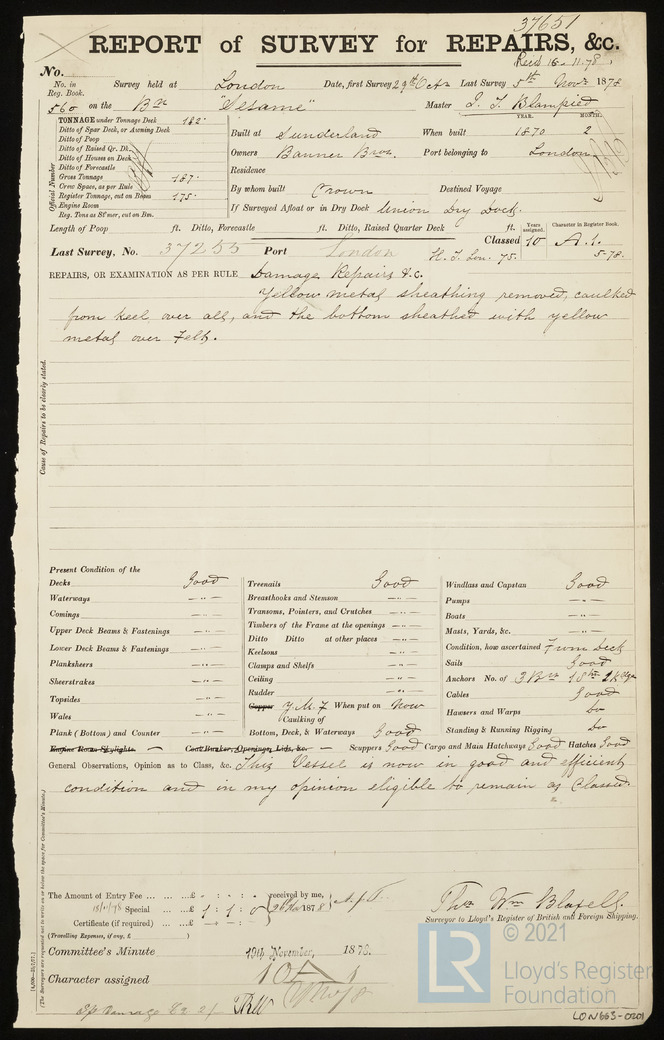 37651
REPORT of SURVEY for REPAIRS, &c.
Recd 16.11.78
No.
No. in Reg. Book. Survey held at London Date, first Survey 29th Oct Last Survey 5th Novr 1878
560 on the Bn "Sesame" Master J. T. Blampied
TONNAGE under Tonnage Deck 182
Ditto of Spar Deck, or Awning Deck
Ditto of Poop
Ditto of Raised Qr. Dk.
Ditto of Houses on Deck
Ditto of Forecastle
Gross Tonnage 187
Crew Space, as per Rule
Register Tonnage, cut on Beam 175
Engine Room
Reg. Tons as St'mer, cut on Bm.
Official Number
YEAR. MONTH.
Built at Sunderland When built 1870 2
Owners Banner Bros. Port belonging to London
Residence
By whom built Crown Destined Voyage
If Surveyed Afloat or in Dry Dock Union Dry Dock.
Length of Poop ft. Ditto, Forecastle ft. Ditto, Raised Quarter Deck ft.
Years assigned. Character in Register Book.
Last Survey, No. 37255 Port London Classed 10 A.1.
H. T. Lon. 75. 5-78.
REPAIRS, OR EXAMINATION AS PER RULE Damage Repairs &c.
Yellow metal sheathing removed, caulked
from keel over all, and the bottom sheathed with yellow
metal over Felt.
Cause of Repairs to be clearly stated.
Present Condition of the
Decks Good
Waterways —"—
Comings —"—
Upper Deck Beams & Fastenings —"—
Lower Deck Beams & Fastenings —"—
Planksheers —"—
Sheerstrakes —"—
Topsides —"—
Wales —"—
Plank (Bottom) and Counter —"—
Treenails Good
Breasthooks and Stemson —"—
Transoms, Pointers, and Crutches —"—
Timbers of the Frame at the openings —"—
Ditto Ditto at other places —"—
Keelsons —"—
Clamps and Shelfs —"—
Ceiling —"—
Rudder —"—
Copper Y.M.F. When put on Now
Caulking of
Bottom, Deck, & Waterways Good
Windlass and Capstan Good
Pumps —"—
Boats —"—
Masts, Yards, &c. —"—
Condition, how ascertained From Deck
Sails Good
Anchors No. of 3 Brs 1 Stm
Cables Good
Hawsers and Warps Do
Standing & Running Rigging Do
Engine Room Skylights — Coal Bunker, Openings, Lids, &c. — Scuppers Good Cargo and Main Hatchways Good Hatches Good
General Observations, Opinion as to Class, &c. This Vessel is now in good and efficient
condition and in my opinion eligible to remain as Classed.
(The Surveyors are requested not to write on or below the space for Committee's Minute.)
The Amount of Entry Fee ... ... £ : : received by me,
18/11/78 Special ... £ 1 : 1 : 0 1878
Certificate (if required) ... £
(Travelling Expenses, if any, £ )
Thos Wm Blaxell.
Surveyor to Lloyd's Register of British and Foreign Shipping.
Committee's Minute 19th November, 1878.
Character assigned 10 A 1
LR
© 2021
Lloyd's Register
Foundation
LON663-0201